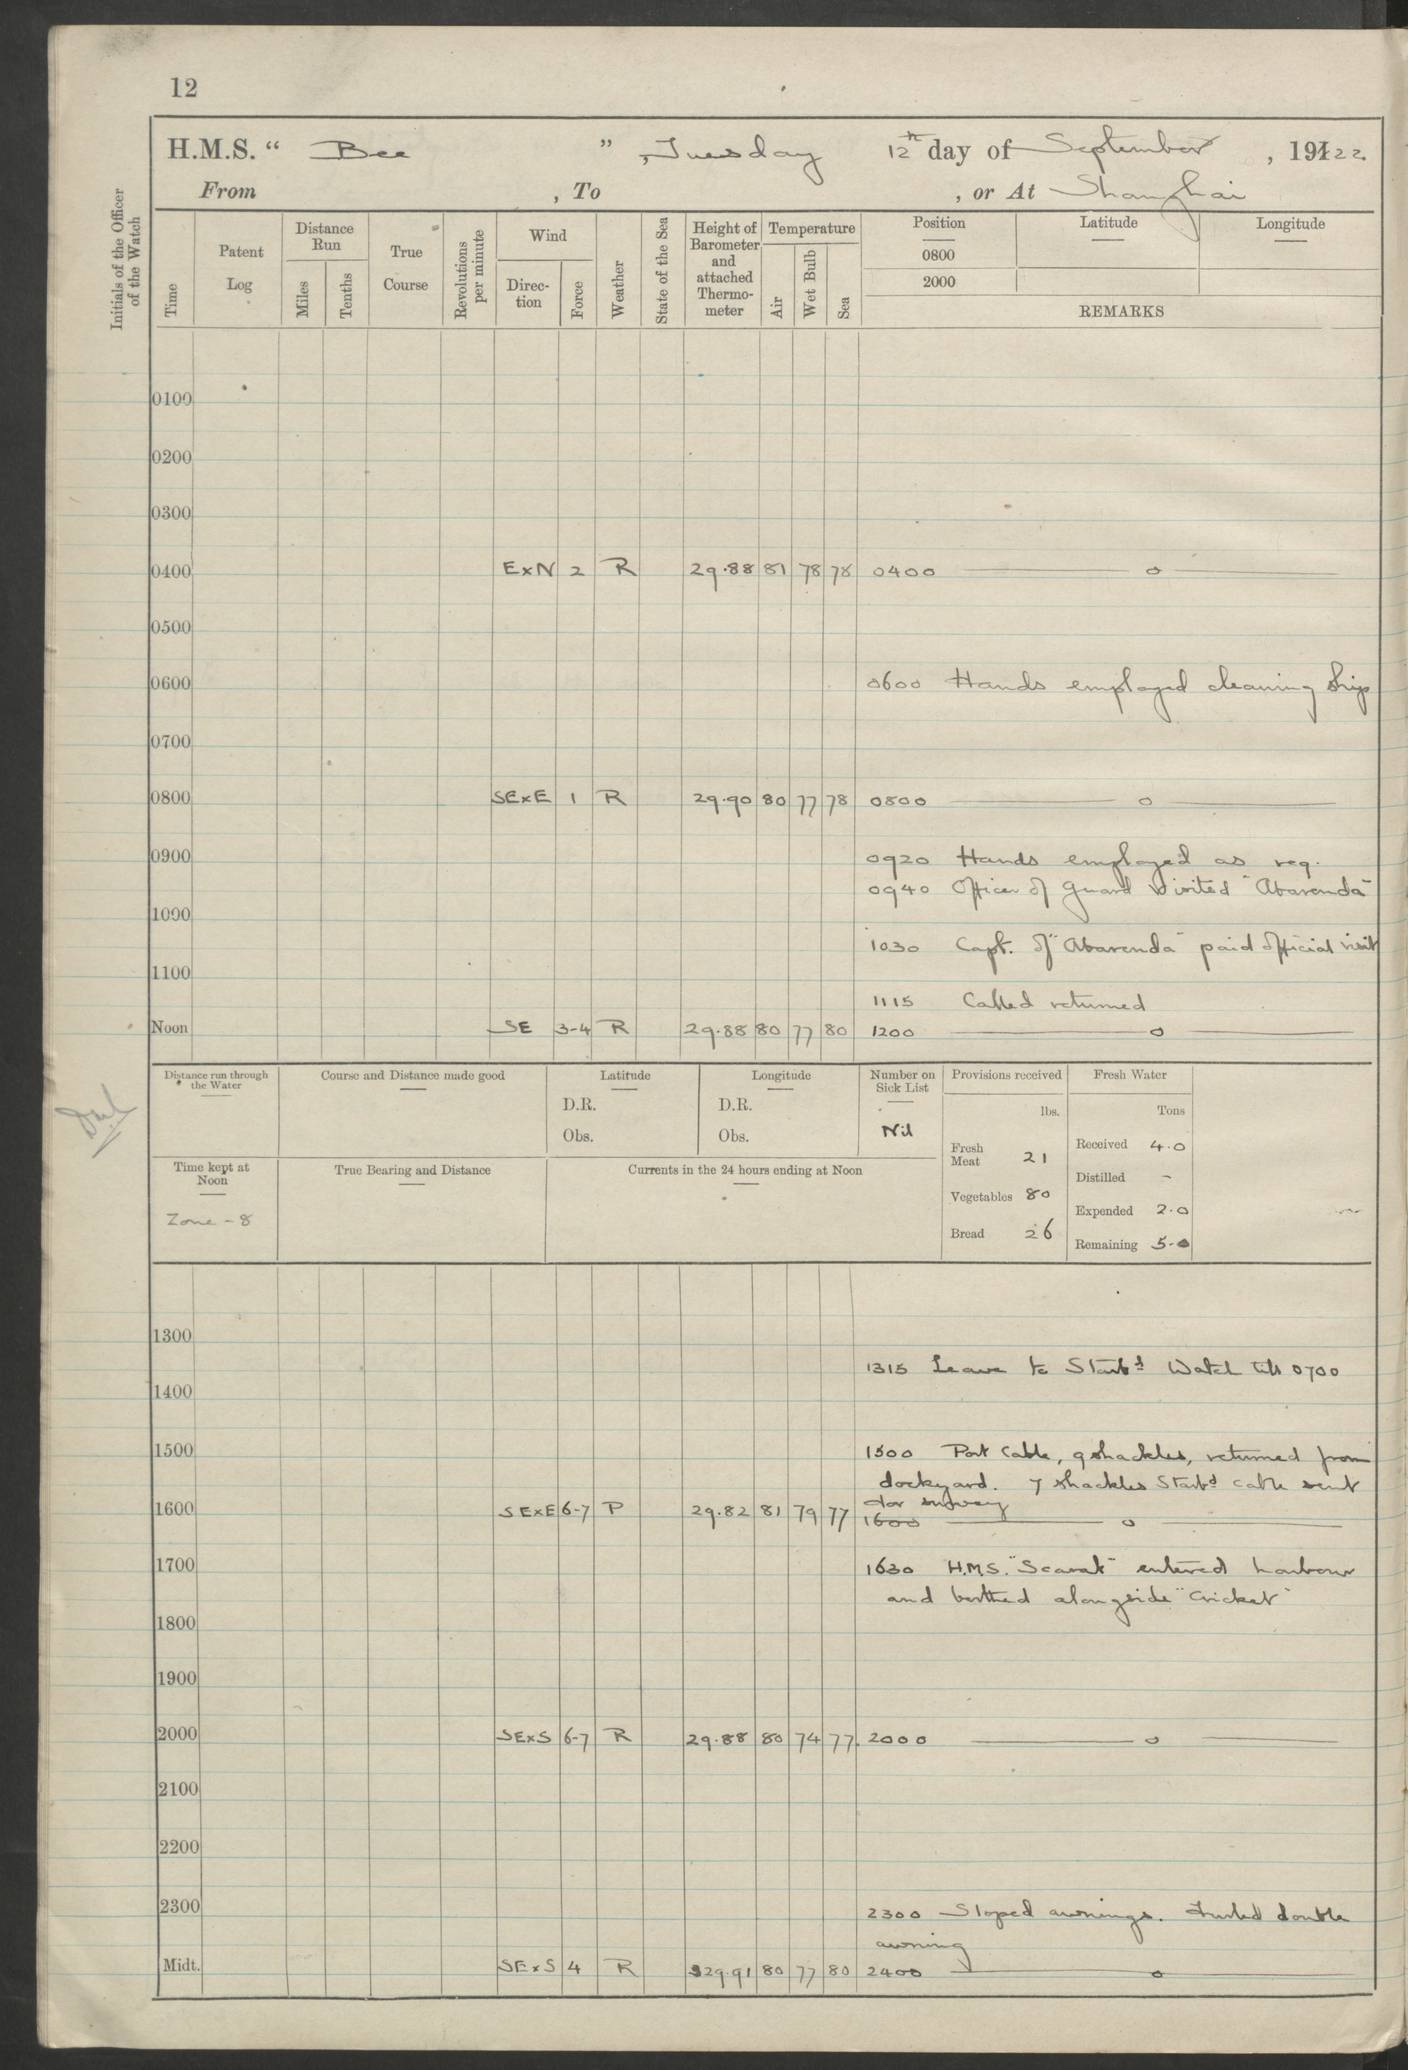 12
H.M.S. “ Bee ” , Tuesday 12th day of September , 1922.
From , To , or At Shanghai
Initials of the Officer of the Watch
Time
Patent Log
Distance Run
Miles
Tenths
True Course
Revolutions per minute
Wind
Direc-tion
Force
Weather
State of the Sea
Height of Barometer and attached Thermo-meter
Temperature
Air
Wet Bulb
Sea
Position Latitude Longitude
0800
2000
REMARKS
0100
0200
0300
0400 ExN 2 R 29.88 81 78 78 0400 —— o ——
0500
0600 0600 Hands employed cleaning ship
0700
0800 SExE 1 R 29.90 80 77 78 0800 —— o ——
0900 0920 Hands employed as req.
0940 Officer of Guard visited "Abarenda"
1090
1030 Capt. of "Abarenda" paid official visit
1100
1115 Called returned
Noon SE 3-4 R 29.88 80 77 80 1200 —— o ——
Distance run through the Water
Course and Distance made good
Latitude
D.R.
Obs.
Longitude
D.R.
Obs.
Number on Sick List
Nil
Provisions received
lbs.
Fresh Meat 21
Vegetables 80
Bread 26
Fresh Water
Tons
Received 4.0
Distilled -
Expended 2.0
Remaining 5.0
Time kept at Noon
Zone - 8
True Bearing and Distance
Currents in the 24 hours ending at Noon
1300
1315 Leave to Starbd Watch till 0700
1400
1500 1500 Port Cable, 9 shackles, returned from
dockyard. 7 shackles Starbd cable sent
for survey
1600 SExE 6-7 P 29.82 81 79 77 1600 —— o ——
1700 1630 H.M.S. "Scarab" entered harbour
and berthed alongside "Cricket"
1800
1900
2000 SExS 6-7 R 29.88 80 74 77 2000 —— o ——
2100
2200
2300 2300 Sloped awnings. Furled double
awning
Midt. SExS 4 R 29.91 80 77 80 2400 —— o ——